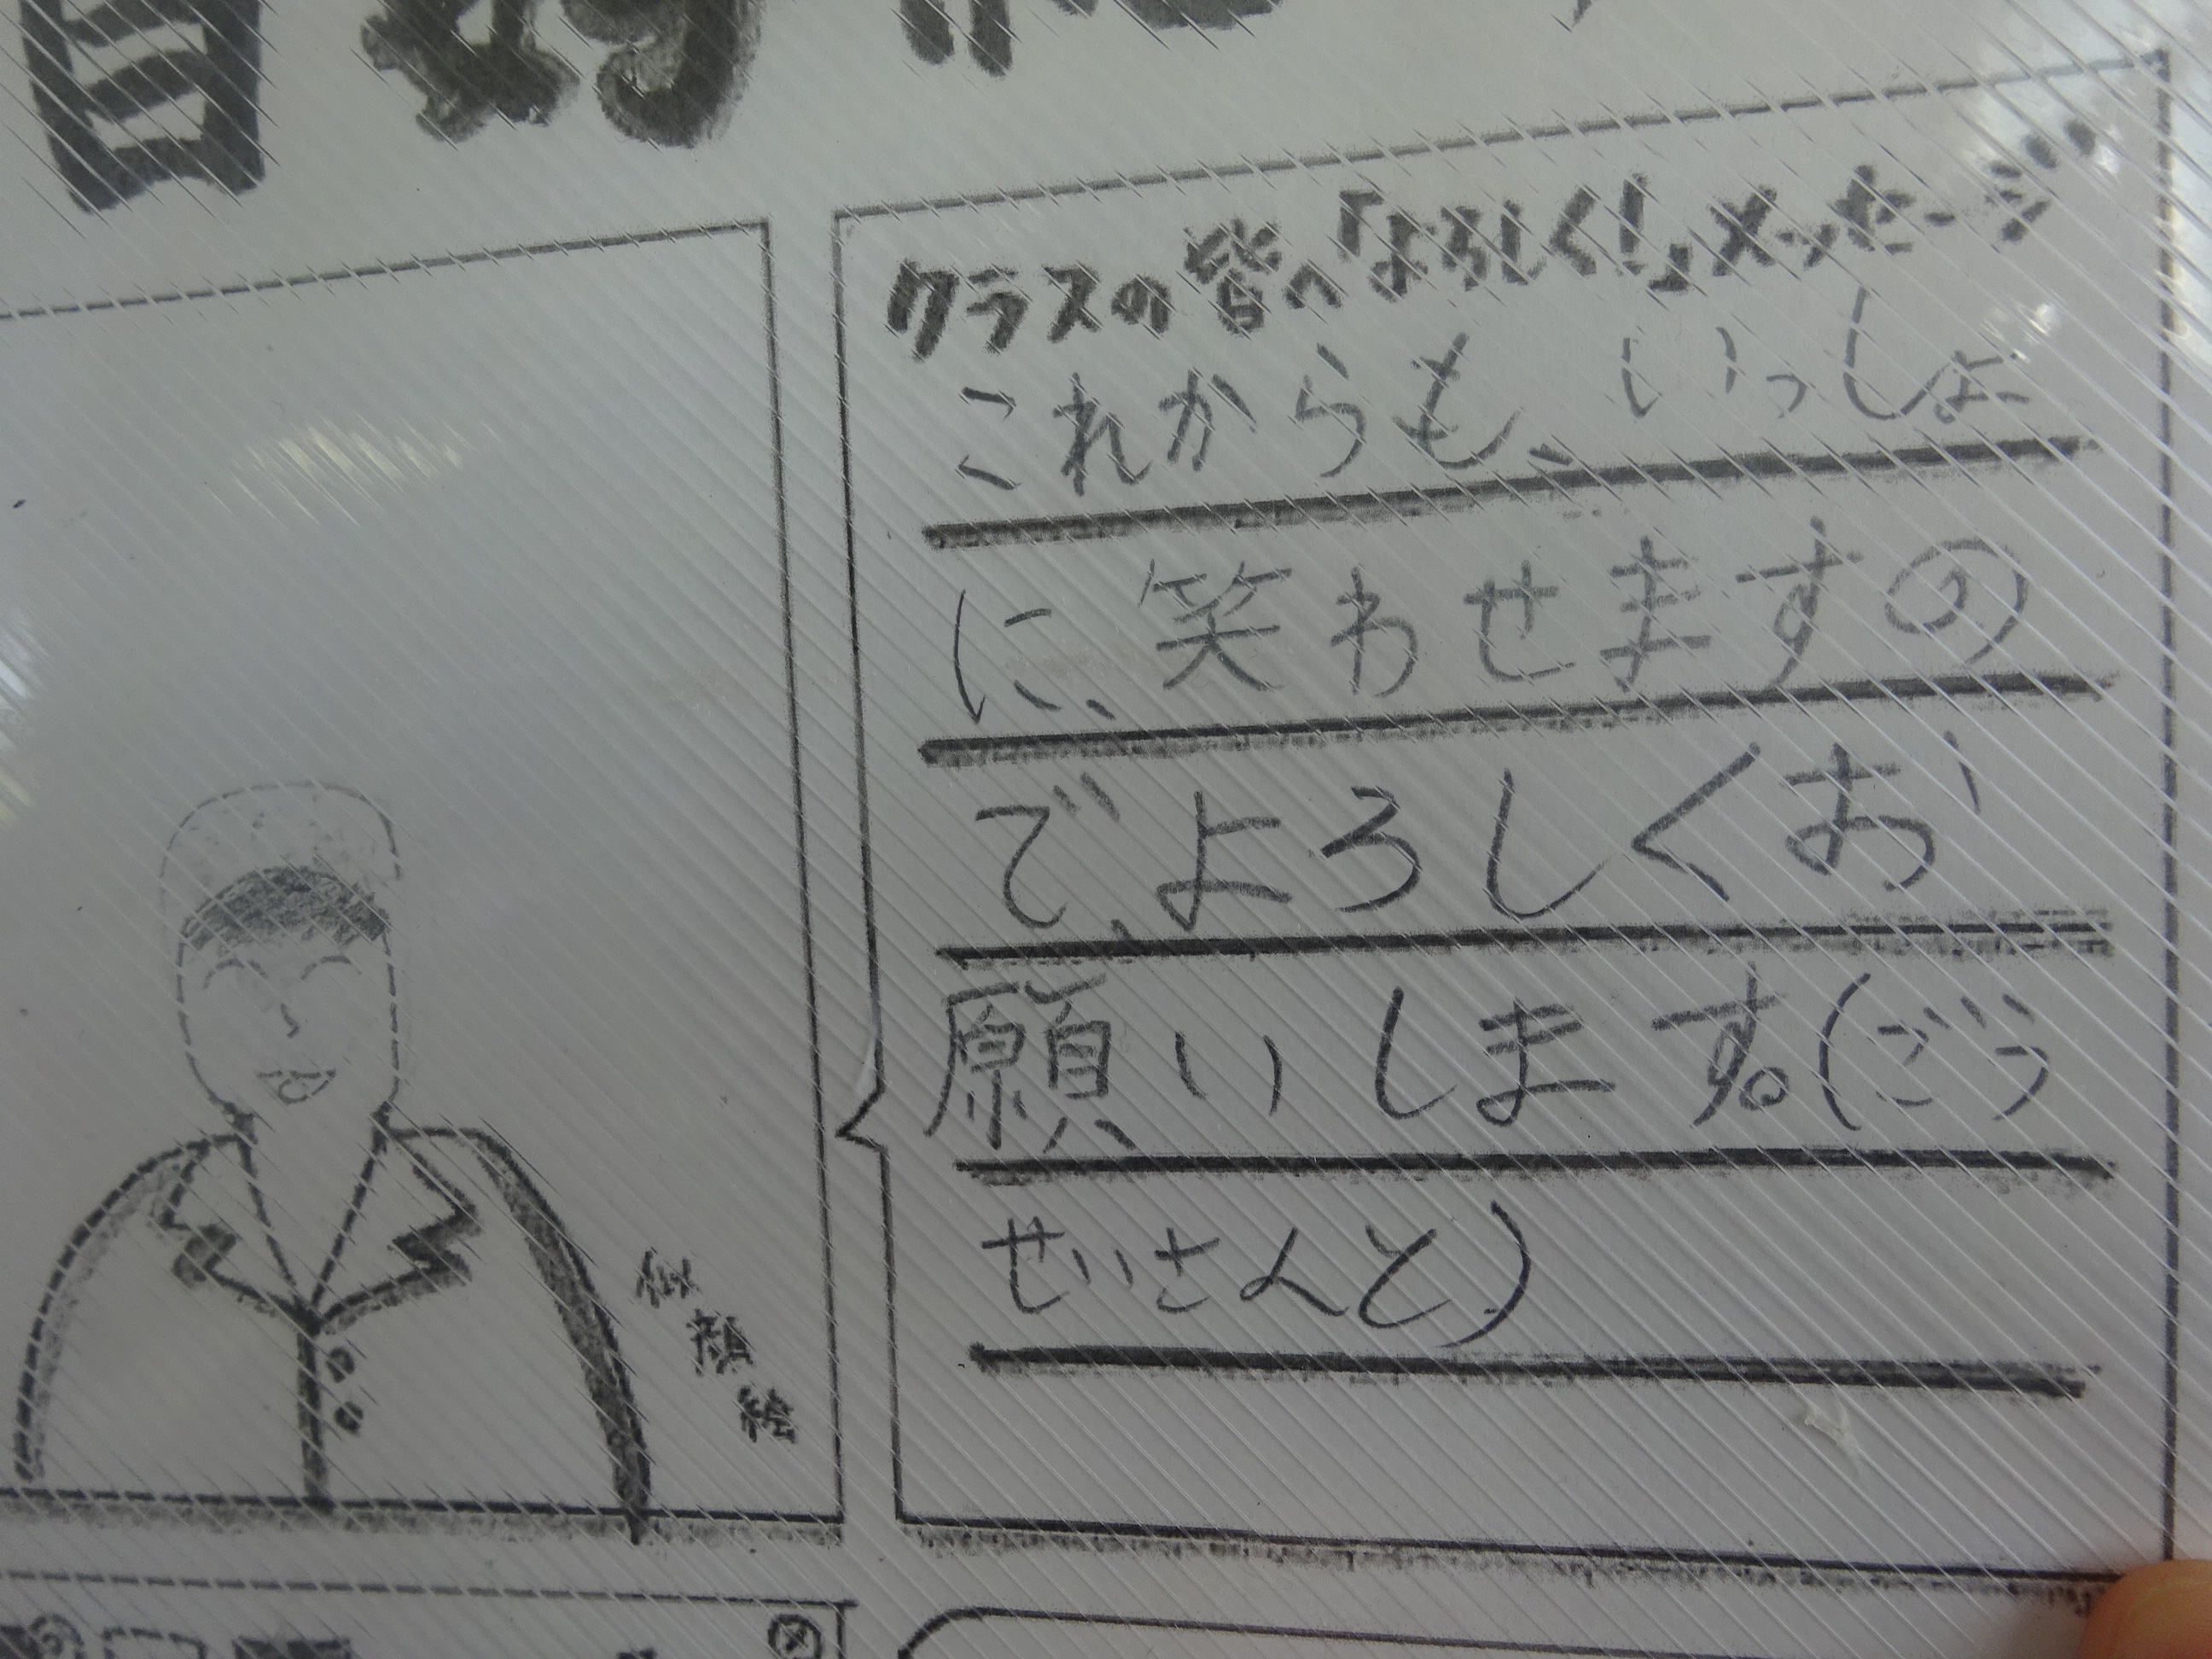 クラスの皆へ「よろしく！」メッセージ
これからも、いっしょ
に、笑わせますの
で、よろしくお
願いします。(ごう
せいさんと)
似顔絵